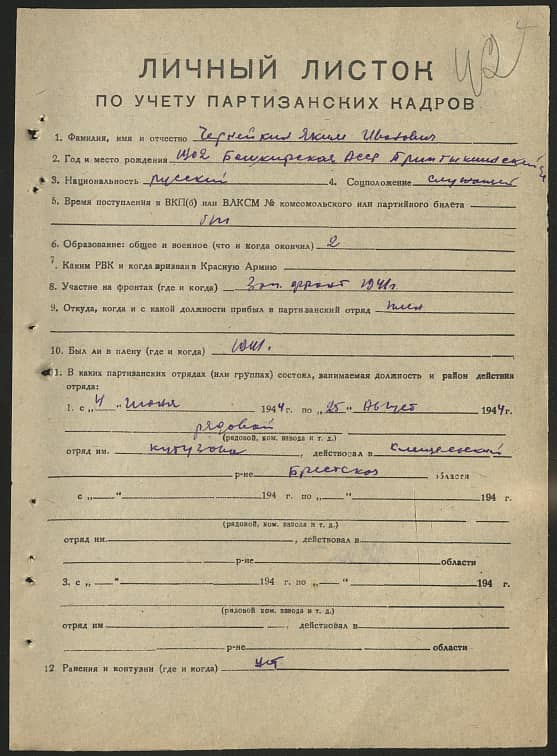 ЛИЧНЫЙ ЛИСТОК
ПО УЧЕТУ ПАРТИЗАНСКИХ КАДРОВ
1. Фамилия, имя и отчество Яким Иванович
2. Год и место рождения Башкирская АССР
3. Национальность русский 4. Соцположение служащий
5. Время поступления в ВКП(б) или ВЛКСМ № комсомольского или партийного билета
б/п
6. Образование: общее и военное (что и когда окончил) 2
7. Каким РВК и когда призван в Красную Армию
8. Участие на фронтах (где и когда) Зап. фронт 1941г.
9. Откуда, когда и с какой должности прибыл в партизанский отряд плен
10. Был ли в плену (где и когда)
11. В каких партизанских отрядах (или группах) состоял, занимаемая должность и район действия
отряда:
1. с „4" июня 1944 г. по „25" Август 1944 г.
рядовой
(рядовой, ком. взвода и т. д.)
отряд им. кутузова, действовал в
р-не Брестской области
с „ " 194 г. по „ " 194 г.
(рядовой, ком. взвода и т. д.)
отряд им. , действовал в
р-не области
3. с „ " 194 г. по „ " 194 г.
(рядовой, ком. взвода и т. д.)
отряд им , действовал в
р-не области
12 Ранения и контузии (где и когда) нет